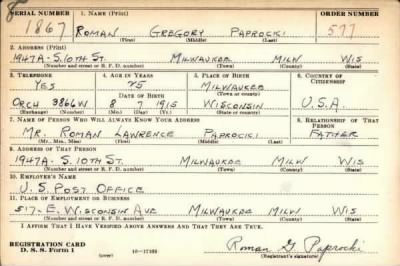 SERIAL NUMBER 1. NAME (Print) ORDER NUMBER
1867 ROMAN GREGORY PAPROCKI 577
(First) (Middle) (Last)
2. ADDRESS (Print)
1947A - S. 10TH ST. MILWAUKEE MILW WIS
(Number and street or R. F. D. number) (Town) (County) (State)
3. TELEPHONE 4. AGE IN YEARS 5. PLACE OF BIRTH 6. COUNTRY OF CITIZENSHIP
YES 25 MILWAUKEE
DATE OF BIRTH (Town or county)
ORCH 3866W 8 7 1915 WISCONSIN U.S.A.
(Exchange) (Number) (Mo.) (Day) (Yr.) (State or country)
7. NAME OF PERSON WHO WILL ALWAYS KNOW YOUR ADDRESS 8. RELATIONSHIP OF THAT PERSON
MR. ROMAN LAWRENCE PAPROCKI FATHER
(Mr., Mrs., Miss) (First) (Middle) (Last)
9. ADDRESS OF THAT PERSON
1947A - S. 10TH ST. MILWAUKEE MILW WIS
(Number and street or R. F. D. number) (Town) (County) (State)
10. EMPLOYER'S NAME
U.S. POST OFFICE
11. PLACE OF EMPLOYMENT OR BUSINESS
517 - E. WISCONSIN AVE MILWAUKEE MILW WIS
(Number and street or R. F. D. number) (Town) (County) (State)
I AFFIRM THAT I HAVE VERIFIED ABOVE ANSWERS AND THAT THEY ARE TRUE.
REGISTRATION CARD
D. S. S. Form 1 (over) Roman G Paprocki
(Registrant's signature)